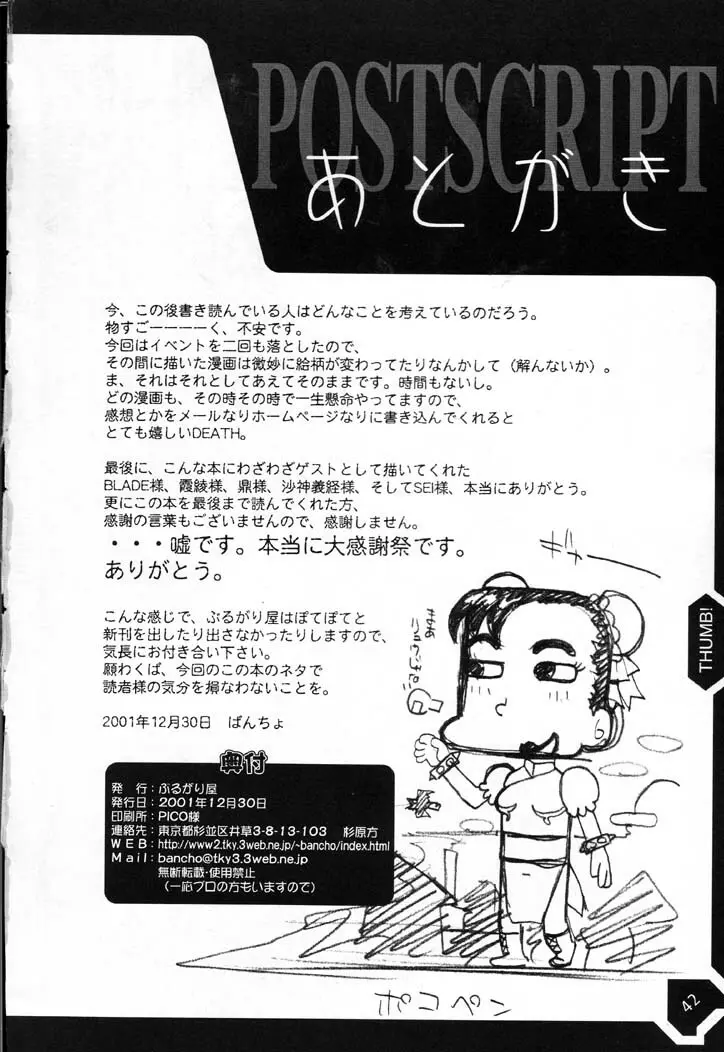 POSTSCRIPT
あとがき
今、この後書き読んでいる人はどんなことを考えているのだろう。
物すごーーーーく、不安です。
今回はイベントを二回も落としたので、
その間に描いた漫画は微妙に絵柄が変わってたりなんかして（解んないか）。
ま、それはそれとしてあえてそのままです。時間もないし。
どの漫画も、その時その時で一生懸命やってますので、
感想とかをメールなりホームページなりに書き込んでくれると
とても嬉しいDEATH。
最後に、こんな本にわざわざゲストとして描いてくれた
BLADE様、霞綾様、鼎様、沙神義経様、そしてSEI様、本当にありがとう。
更にこの本を最後まで読んでくれた方、
感謝の言葉もございませんので、感謝しません。
・・・嘘です。本当に大感謝祭です。
ありがとう。
こんな感じで、ぶるがり屋はぽてぽてと
新刊を出したり出さなかったりしますので、
気長にお付き合い下さい。
願わくば、今回のこの本のネタで
読者様の気分を損なわないことを。
2001年12月30日　ばんちょ
奥付
発　行：ぶるがり屋
発行日：2001年12月30日
印刷所：PICO様
連絡先：東京都杉並区井草3-8-13-103　杉原方
WEB：http://www2.tky.3web.ne.jp/~bancho/index.html
Mail：bancho@tky3.3web.ne.jp
無断転載・使用禁止
（一応プロの方もいますので）
ポコペン
THUMB!
42